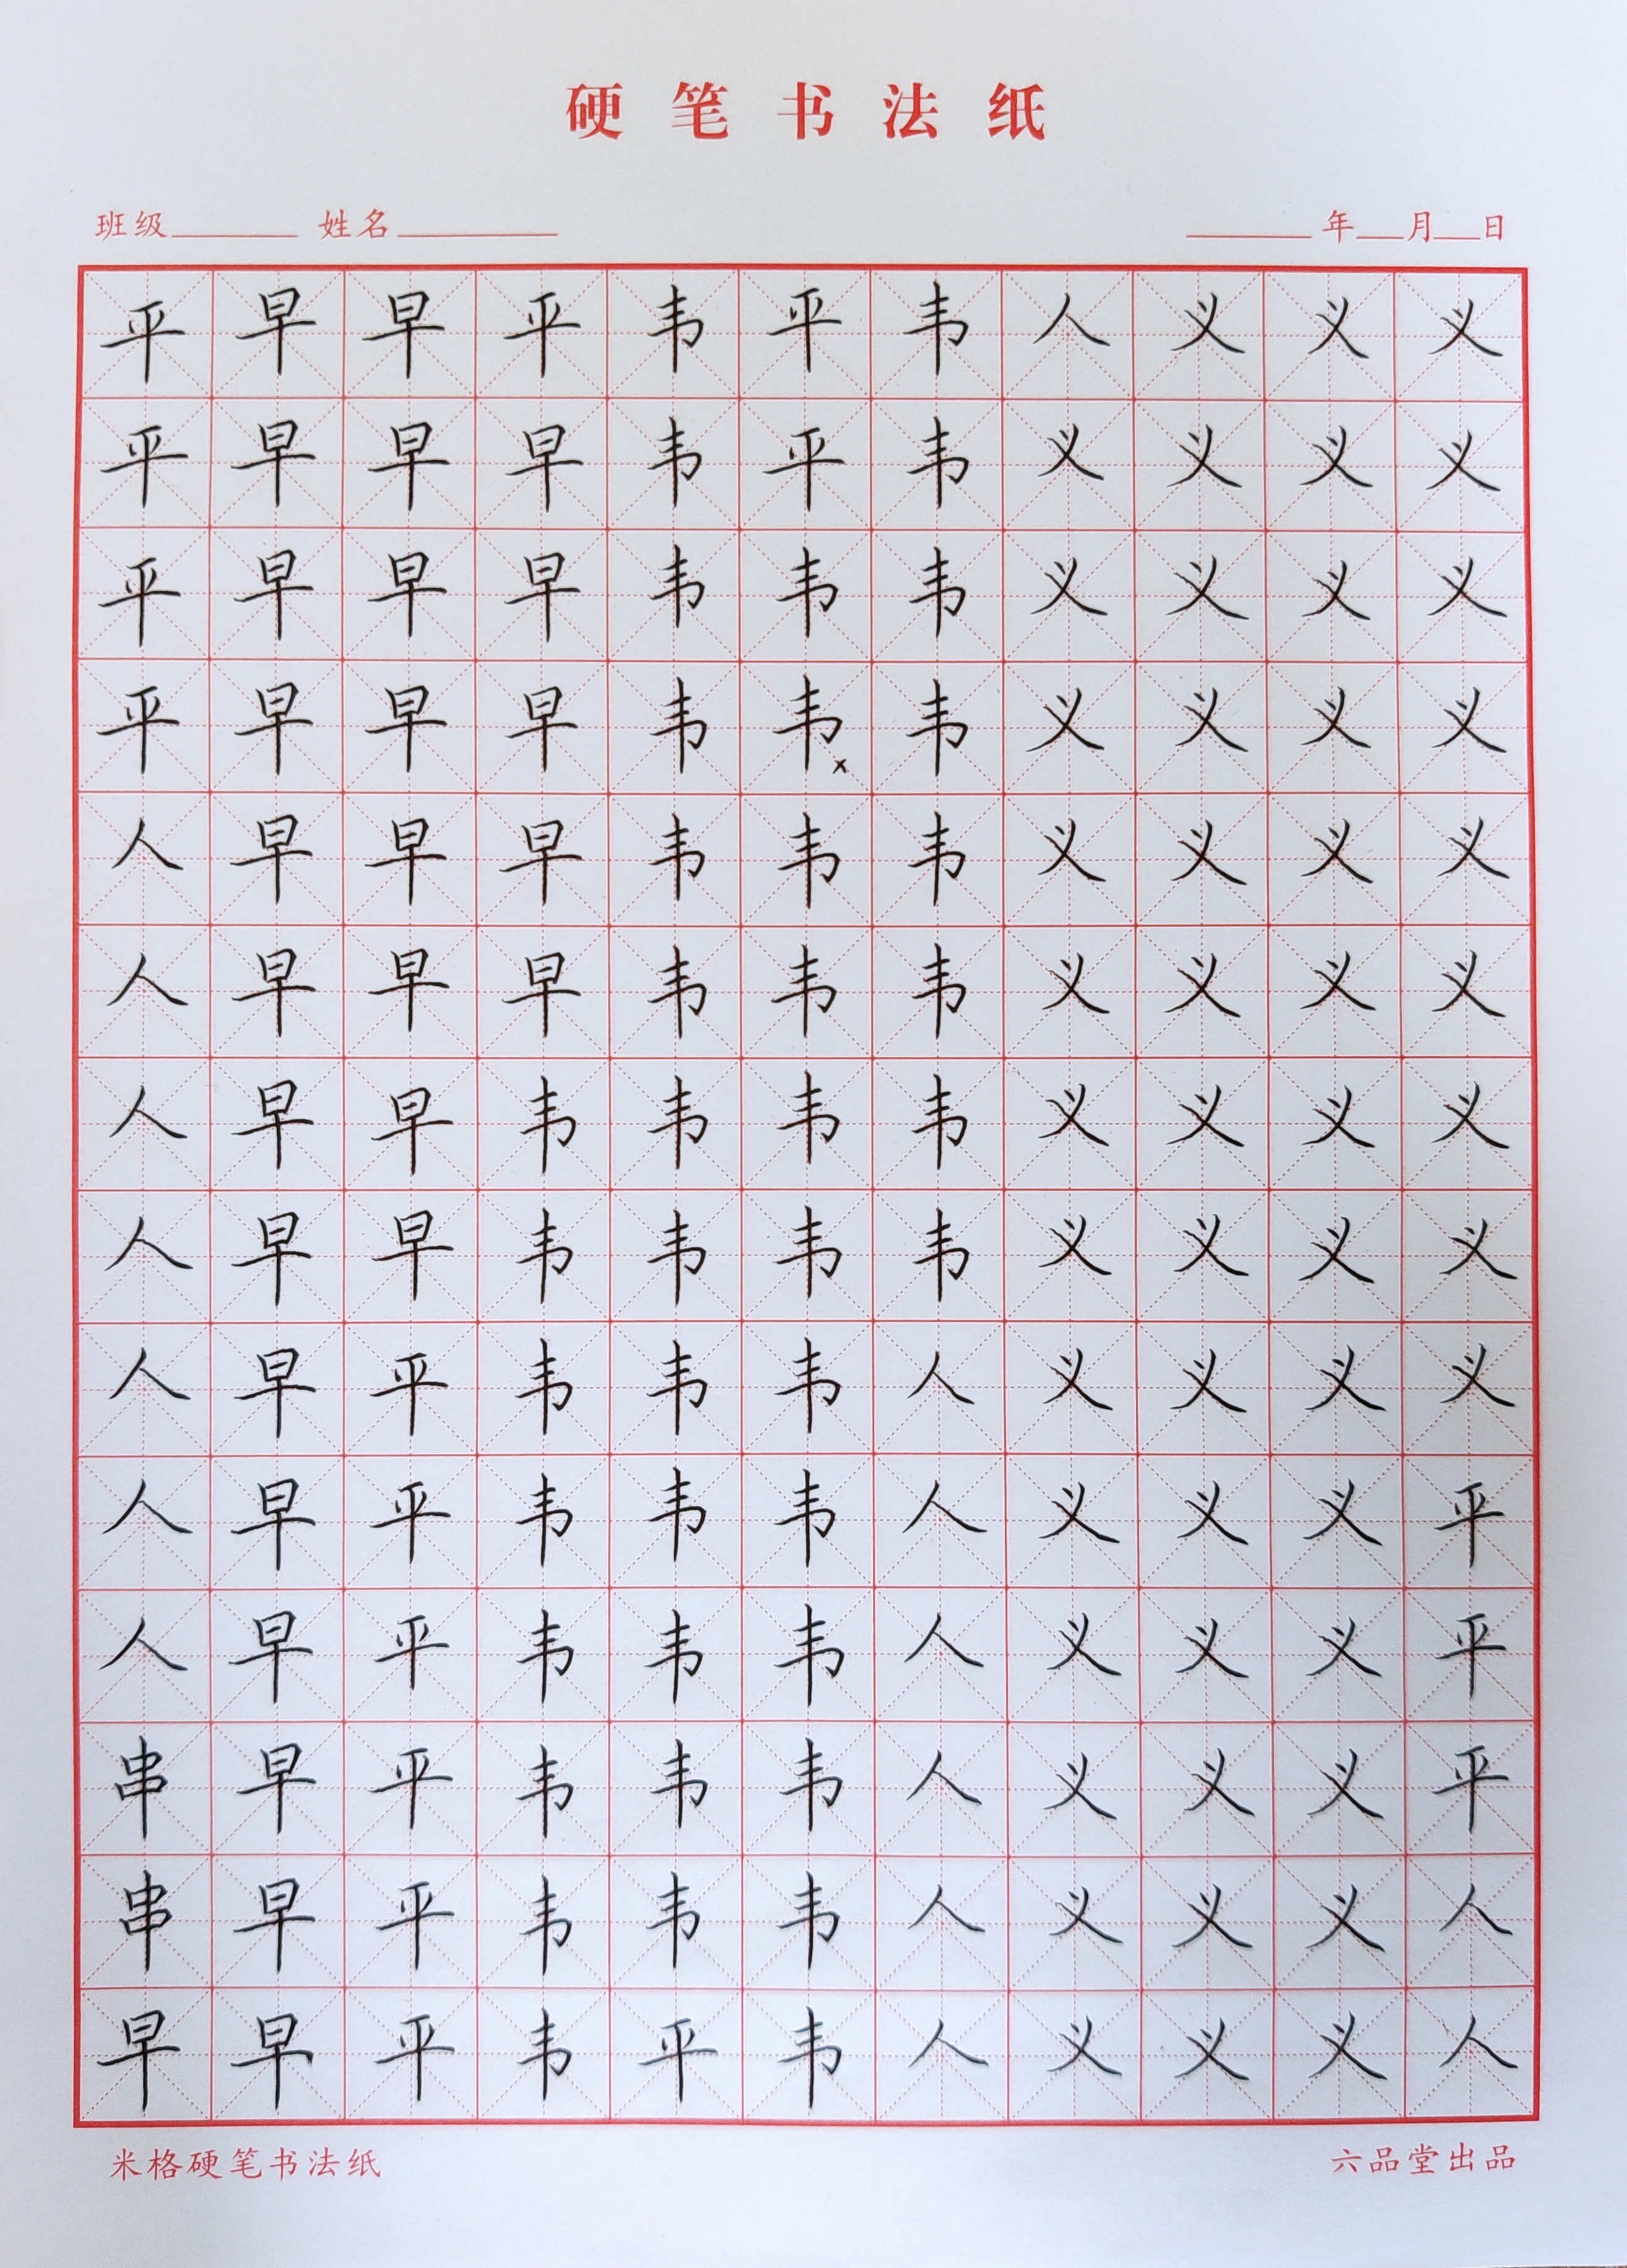 硬笔书法纸
班级 姓名 年 月 日
平早早平韦平韦人义义义
平早早早韦平韦义义义义
平早早早韦韦韦义义义义
平早早早韦韦×韦义义义义
人早早早韦韦韦义义义义
人早早早韦韦韦义义义义
人早早韦韦韦韦义义义义
人早早韦韦韦韦义义义义
人早平韦韦韦人义义义义
人早平韦韦韦人义义义平
人早平韦韦韦人义义义平
串早平韦韦韦人义义义平
串早平韦韦韦人义义义人
早早平韦平韦人义义义人
米格硬笔书法纸 六品堂出品